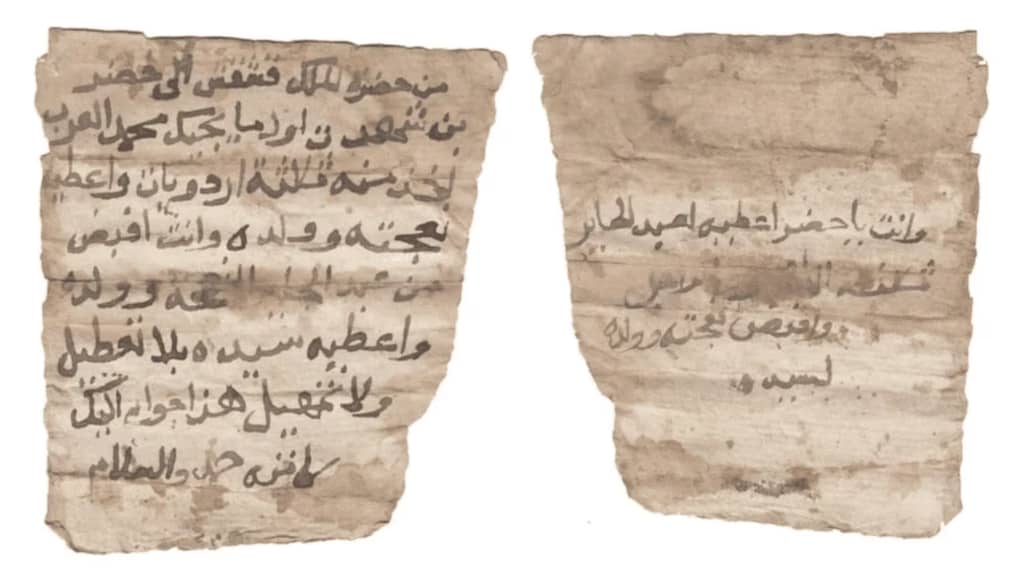 من حضره الملك قشقش الى خضر
بن شهد اول ما يجيك محمد العرب
تخذ منه ثلثة اردويات واعطيه
نعجته وولده وانت اقبض
من عبد الجابر النعجه وولده
واعطيه سيده بلا تعطيل
ولا تمهيل هذا جوابي اليك
والسلام
وانت يا خضر اعطيه لعبد الجابر
ثلثة
واقبض نعجته وولده
لسيده